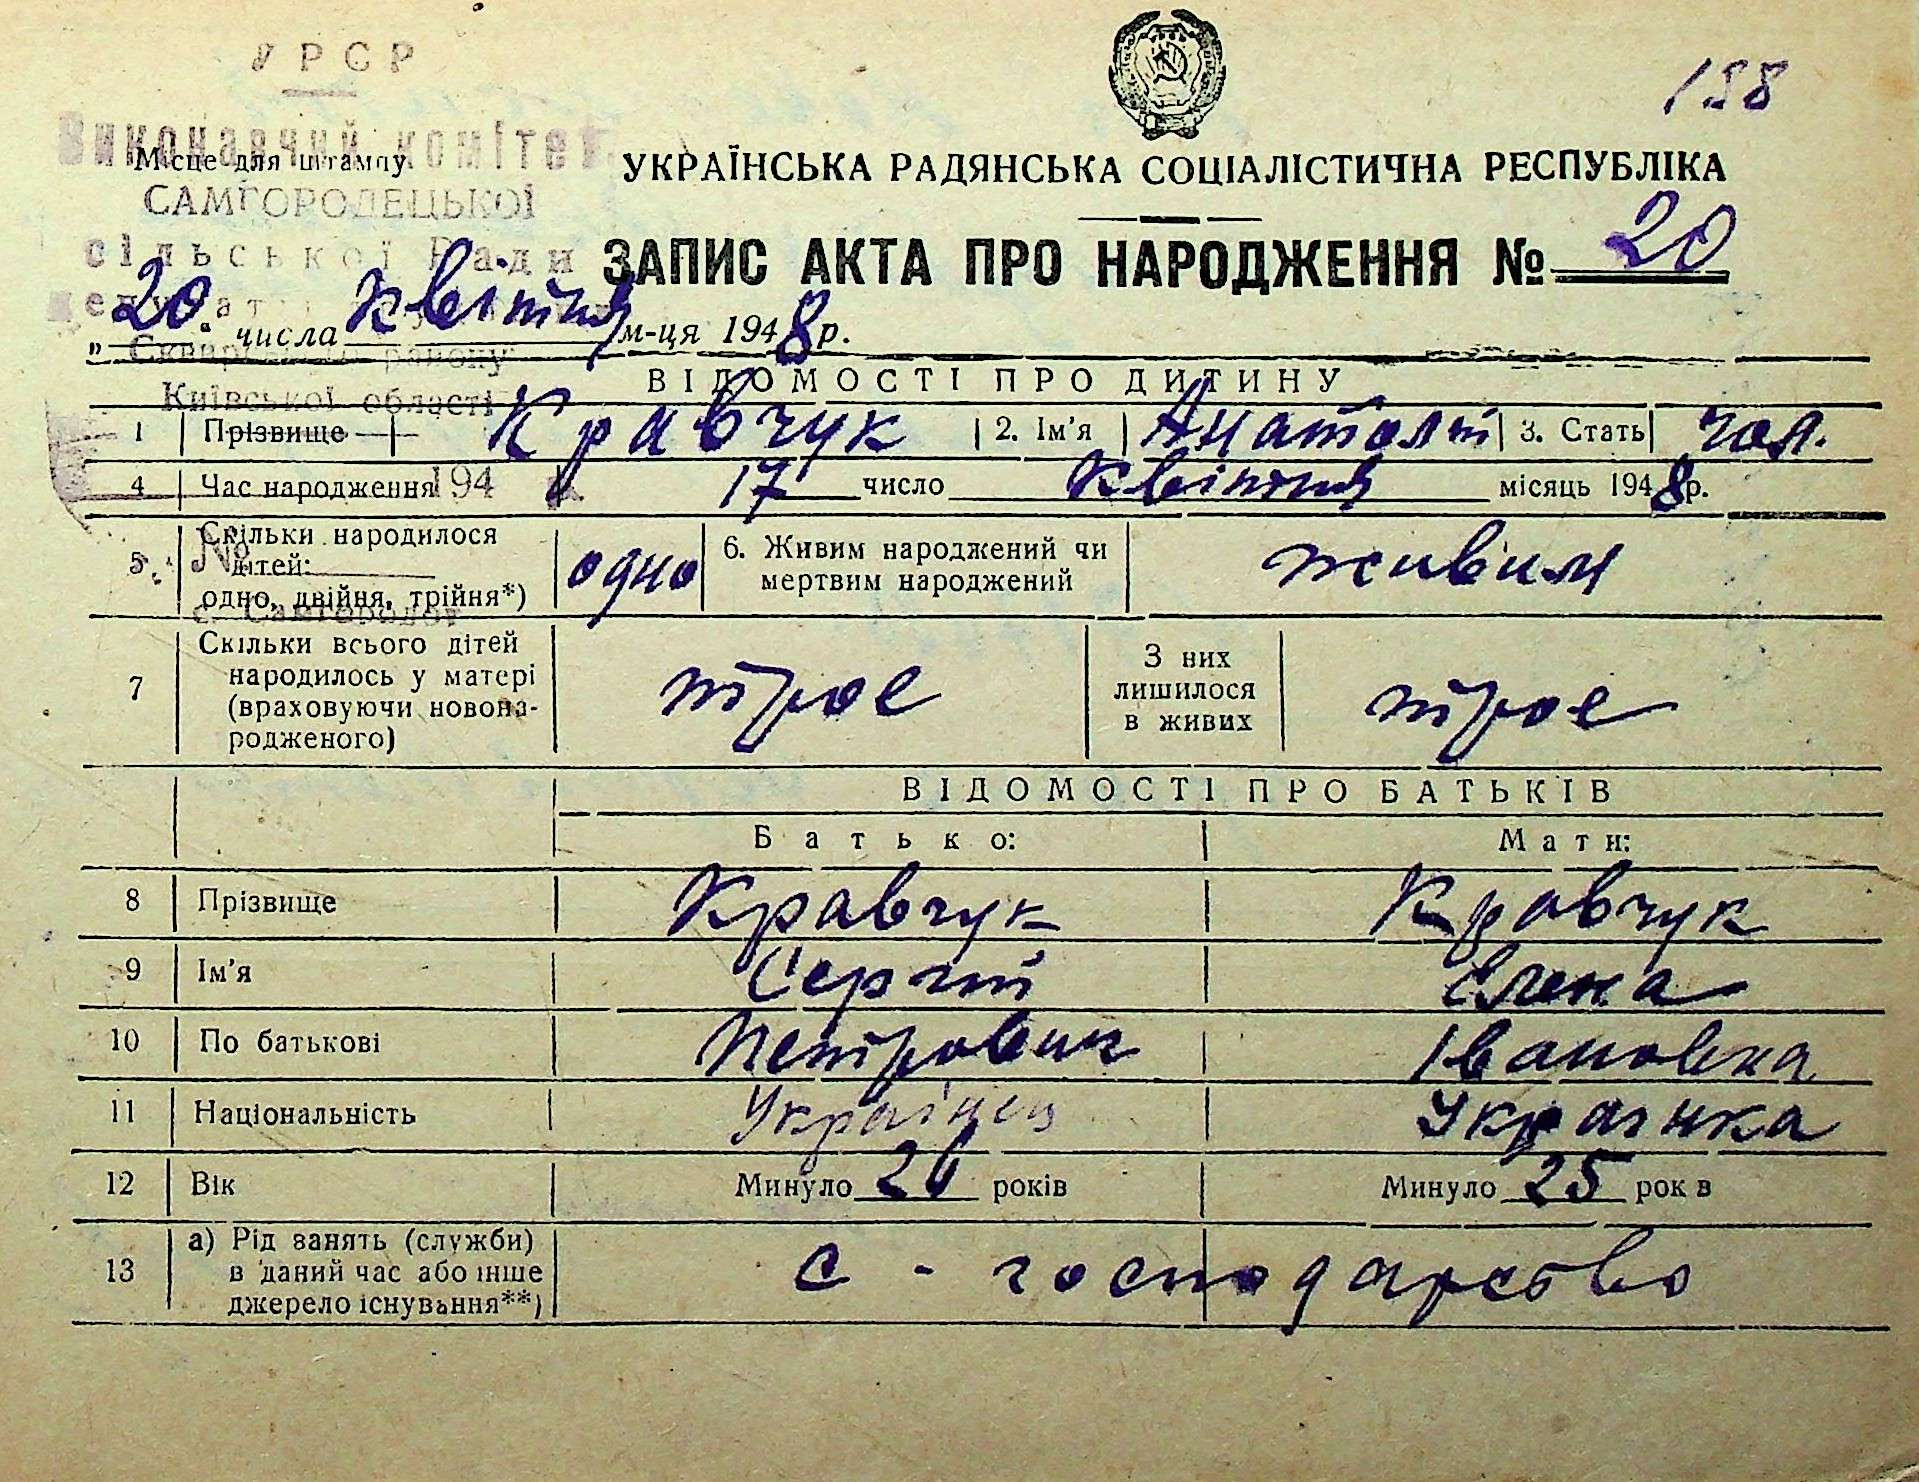 УРСР
198
Виконавчий комітет
Місце для штампу
УКРАЇНСЬКА РАДЯНСЬКА СОЦІАЛІСТИЧНА РЕСПУБЛІКА
САМГОРОДЕЦЬКОЇ
сільської Ради
ЗАПИС АКТА ПРО НАРОДЖЕННЯ № 20
„20" числа квітня м-ця 1948 р.
Сквирського району
ВІДОМОСТІ ПРО ДИТИНУ
Київської області
1 Прізвище Кравчук 2. Ім'я Анатолій 3. Стать чол.
4 Час народження 17 число квітня місяць 1948 р.
194
5 Скільки народилося дітей: одно, двійня, трійня*) одно 6. Живим народжений чи мертвим народжений живим
№
с. Самгородок
7 Скільки всього дітей народилось у матері (враховуючи новонародженого) трое З них лишилося в живих трое
ВІДОМОСТІ ПРО БАТЬКІВ
Батько: Мати:
8 Прізвище Кравчук Кравчук
9 Ім'я Сергій Елена
10 По батькові Петрович Івановна
11 Національність Українец Украінка
12 Вік Минуло 26 років Минуло 25 рок в
13 а) Рід занять (служби) в даний час або інше джерело існування**) с - господарство